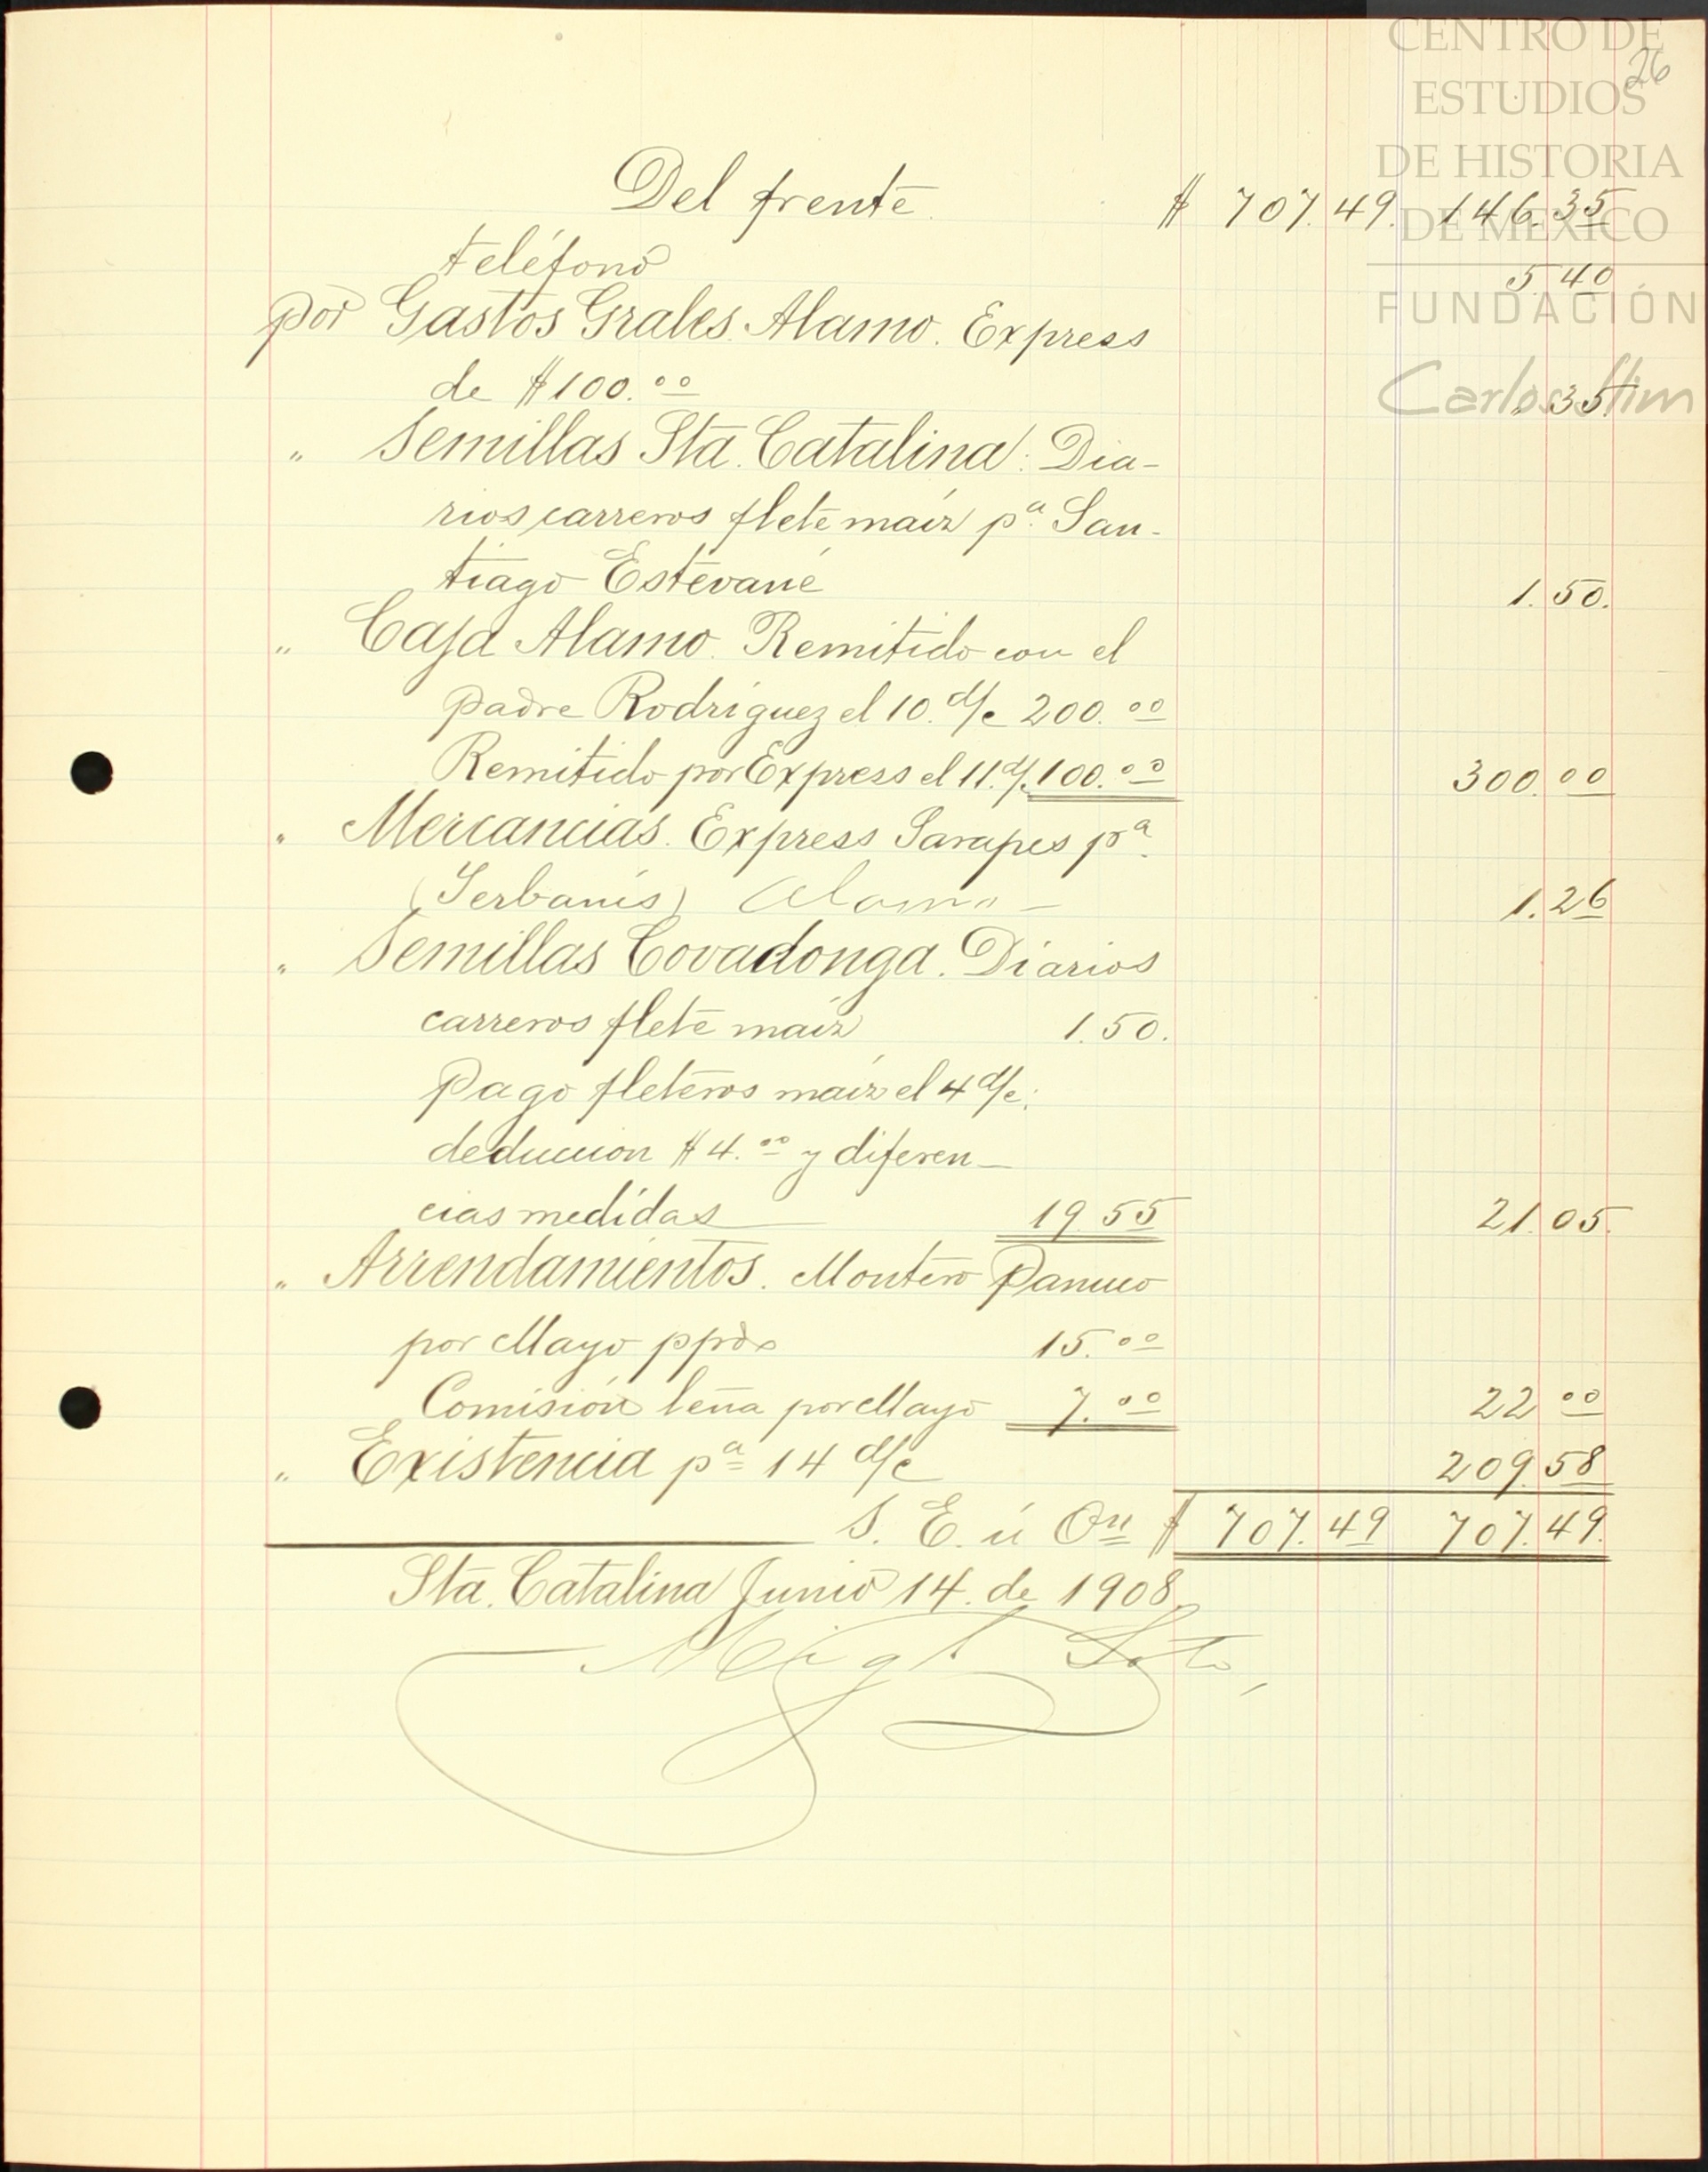 CENTRO DE
ESTUDIOS
DE HISTORIA
DE MÉXICO
FUNDACIÓN
Carlos Slim
26
Del frente $ 707.49. 146.35
teléfono 5 40
por Gastos Grales. Alamo. Express
de $100.00 .35.
" Semillas Sta. Catalina: Dia-
rios carreros flete maíz pa. San-
tiago Estévané 1.50.
" Caja Alamo. Remitido con el
padre Rodríguez el 10. d/c 200.00
Remitido por Express el 11. d/c 100.00 300.00
" Mercancias. Express Sarapes pa.
(Serbanis) Alamo - 1.26
" Semillas Covadonga. Diarios
carreros flete maíz 1.50.
Pago fleteros maíz el 4 d/c:
deduccion $4.00 y diferen-
cias medidas 19 55 21.05.
" Arrendamientos. Montero Panuco
por Mayo ppdo 15.00
Comisión leña por Mayo 7.00 22 00
" Existencia pa 14 d/c 209.58
S. E. ú On $ 707.49 707.49.
Sta. Catalina Junio 14. de 1908.
Migl Soto